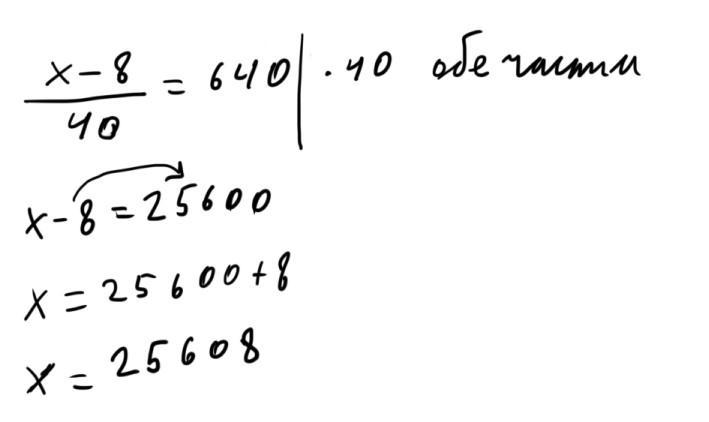 x-8/40 = 640 | · 40 обе части
x-8 = 25600
x = 25600+8
x = 25608